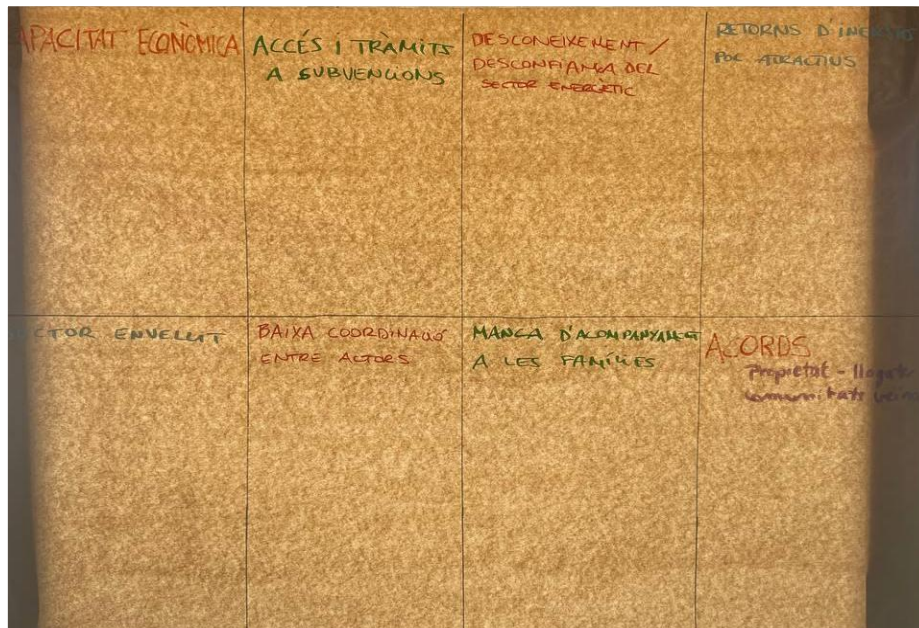 APACITAT ECONÒMICA
ACCÉS i TRÀMITS
A SUBVENCIONS
DESCONEIXEMENT /
DESCONFIANÇA DEL
SECTOR ENERGÈTIC
RETORNS D'INVERSIÓ
POC ATRACTIUS
ECTOR ENVELLIT
BAIXA COORDINACIÓ
ENTRE ACTORS
MANCA D'ACOMPANYAMENT
A LES FAMÍLIES
ACORDS
Propietat - llogat
comunitats veïn